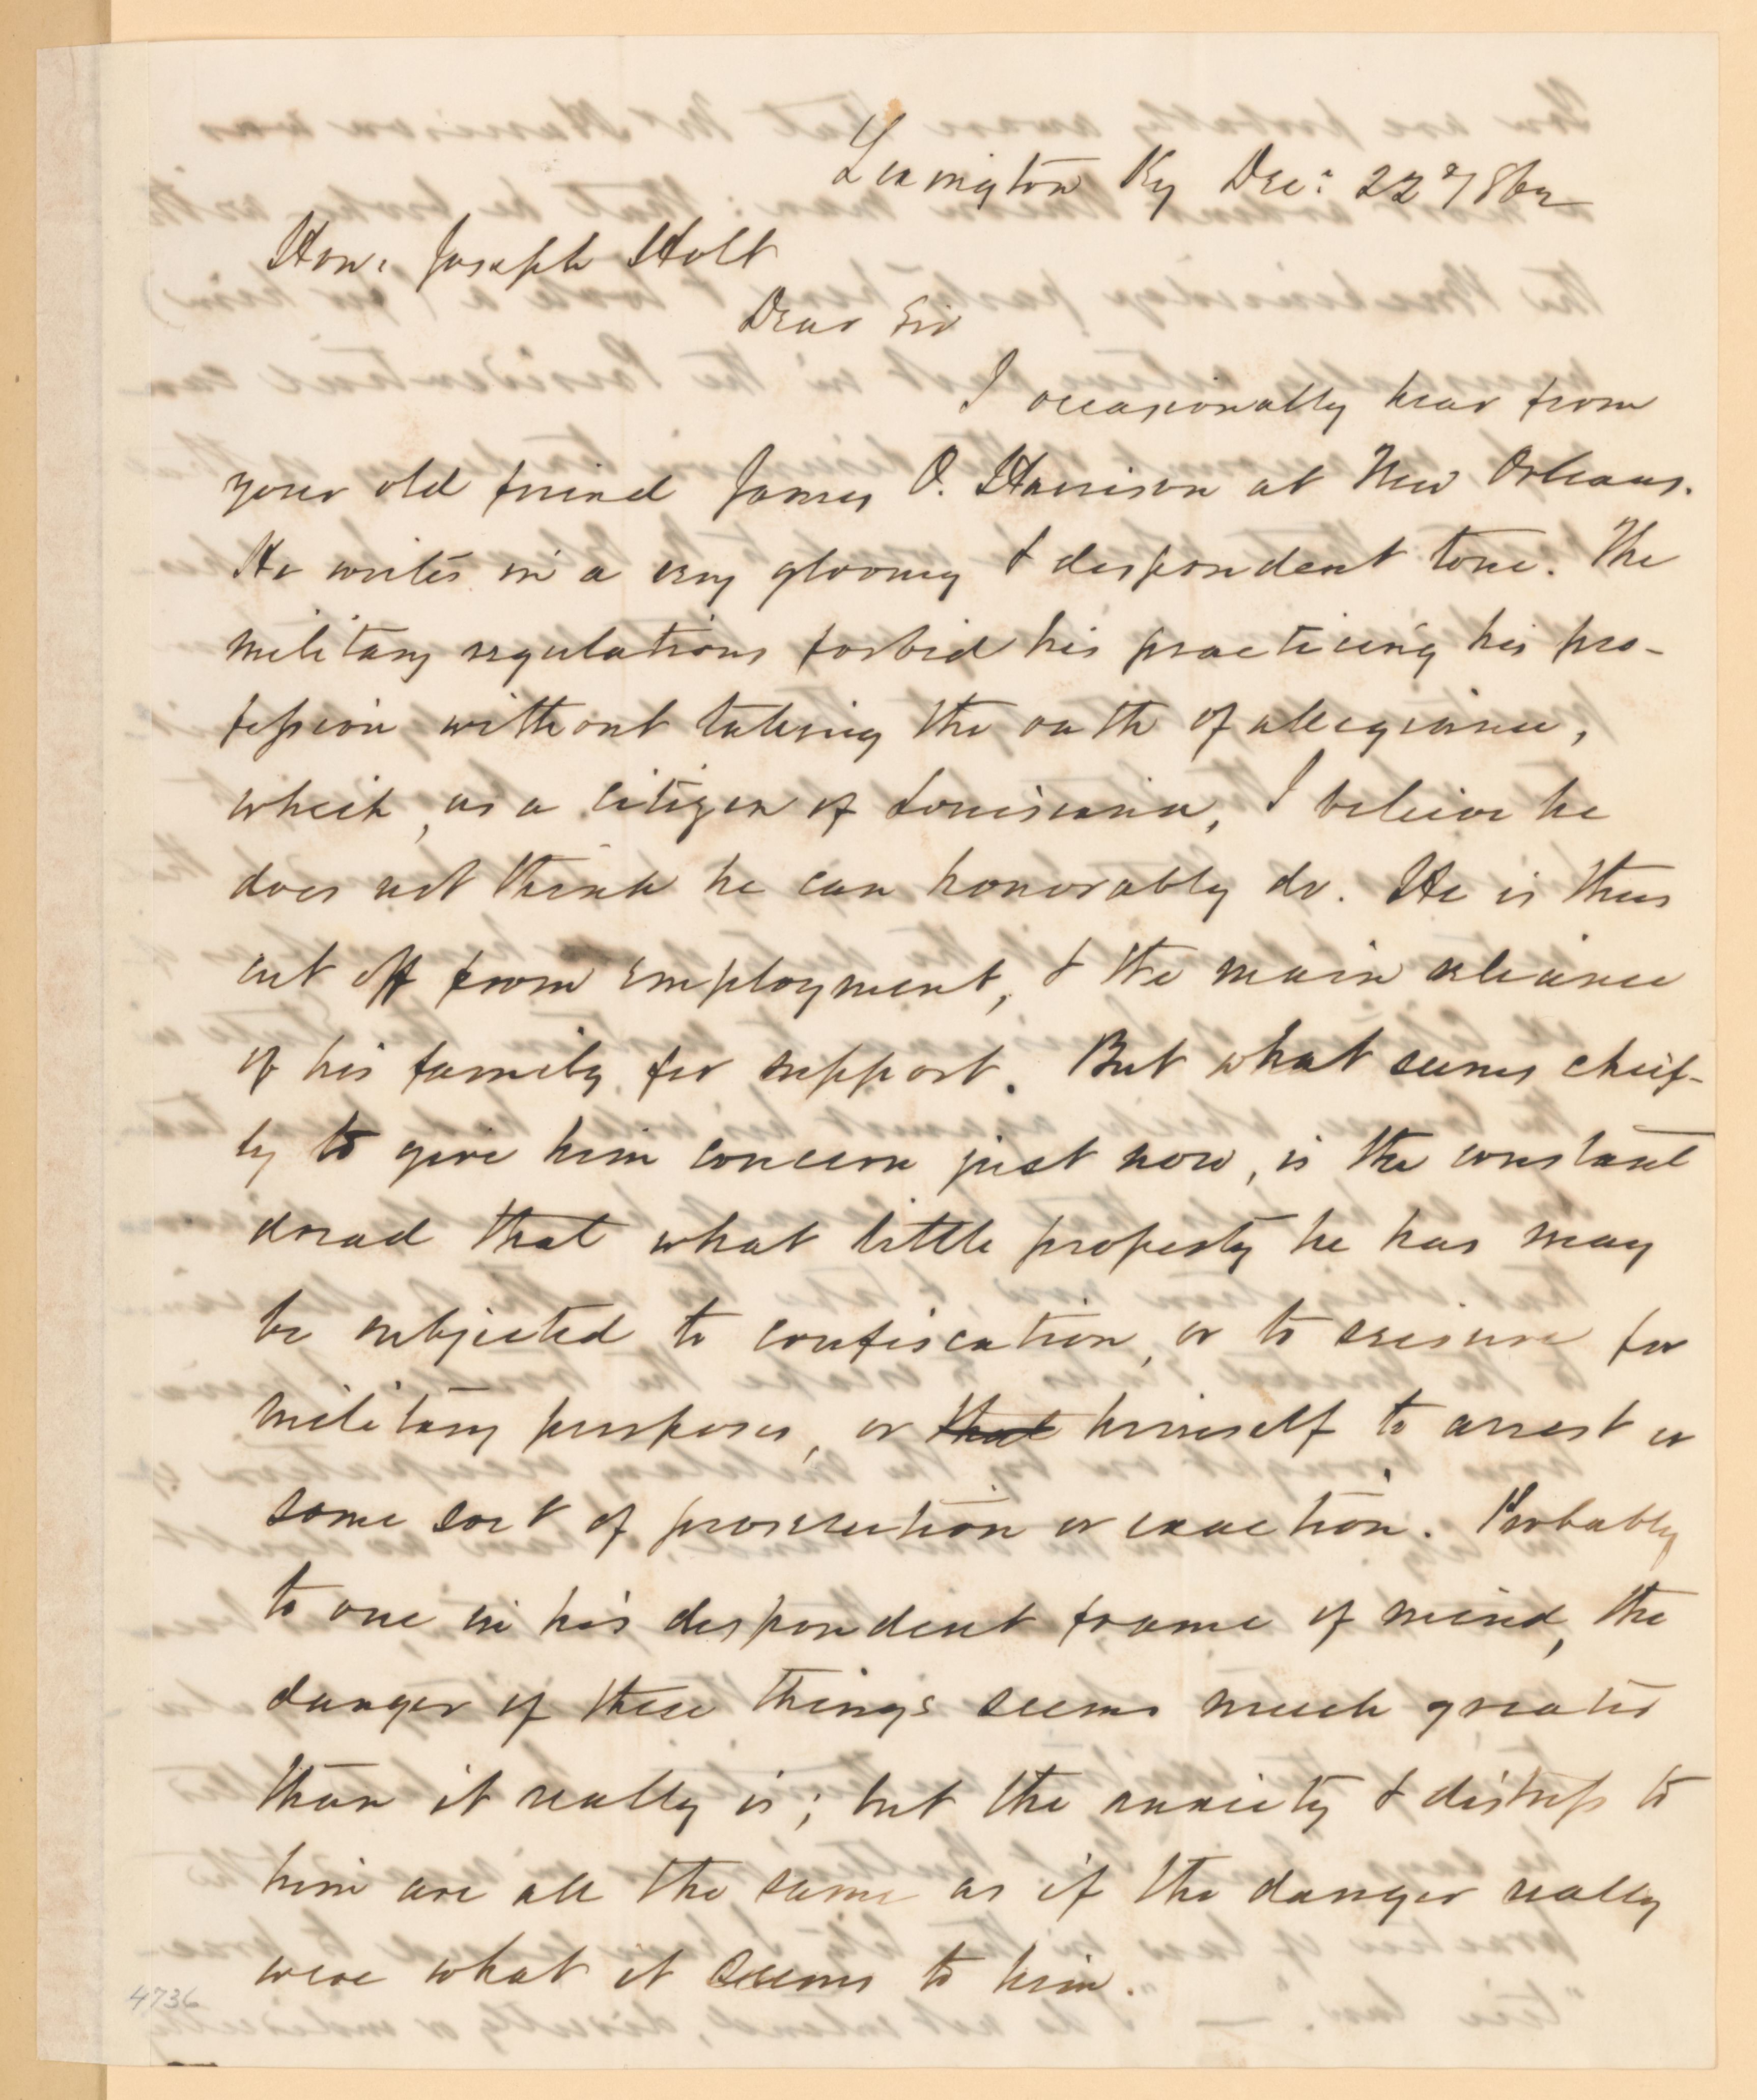 Lexington Ky Dec: 22d 1862
Hon: Joseph Holt
Dear Sir
I occasionally hear from
your old friend James O. Harrison at New Orleans.
He writes in a very gloomy & despondent tone. The
military regulations forbid his practicing his pro-
fession without taking the oath of allegiance,
which, as a citizen of Louisiana, I believe he
does not think he can honorably do. He is thus
cut off from employment, & the main reliance
of his family for support. But what seems chief-
ly to give him concern just now, is the constant
dread that what little property he has may
be subjected to confiscation, or to seizure for
military purposes, or that himself to arrest or
some sort of prosecution or exaction. Probably
to one in his despondent frame of mind, the
danger of these things seems much greater
than it really is; but the anxiety & distress to
him are all the same as if the danger really
were what it seems to him.
4736